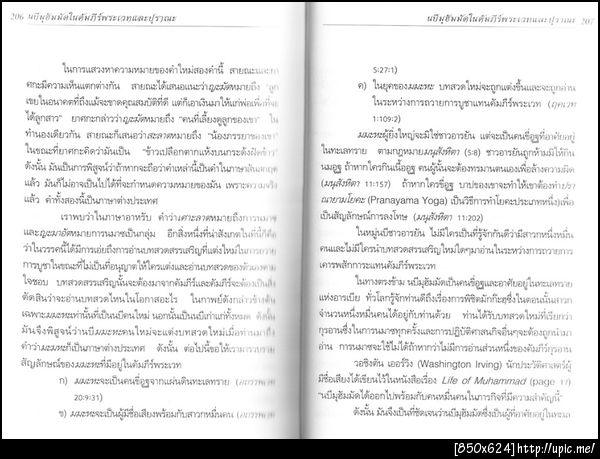 206 นบีมุฮัมมัดในคัมภีร์พระเวทและปุราณะ
ในการแสวงหาความหมายของคำใหม่สองคำนี้ สายณะและยา
ศกะมีความเห็นแตกต่างกัน สายณะได้เสนอแนะว่าฎะมัดหมายถึง "ลูก
เขยในอนาคตที่ถึงแม้จะขาดคุณสมบัติที่ดี แต่ก็เอาเงินมาให้แก่พ่อเพื่อที่จะ
ได้ลูกสาว" ยาศกะกล่าวว่าฎะมัดหมายถึง "คนที่เลี้ยงดูลูกของเขา" ใน
ทำนองเดียวกัน สายณะก็เสนอว่าสะลาตหมายถึง "น้องภรรยาของเขา"
ในขณะที่ยาศกะคิดว่ามันเป็น "ข้าวเปลือกตากแห้งบนกระด้งฝัดข้าว"
ดังนั้น มันเป็นการพิสูจน์ว่าถ้าหากจะถือว่าคำเหล่านี้เป็นคำในภาษาสันสกฤต
แล้ว มันก็ไม่อาจเป็นไปได้ที่จะกำหนดความหมายของมัน เพราะความจริง
แล้ว คำทั้งสองนี้เป็นภาษาต่างประเทศ
เราพบว่าในภาษาอาหรับ คำว่าเศาะลาตหมายถึงการนมาซ
และญะมาอัตหมายการนมาซเป็นกลุ่ม อีกสิ่งหนึ่งที่น่าสังเกตในที่นี้ก็คือ
ว่าในวรรคนี้ได้มีการเอ่ยถึงการอ่านบทสวดสรรเสริญที่แต่งใหม่ในการถวาย
การบูชาในขณะที่ไม่เป็นที่อนุญาตให้ใครแต่งและอ่านบทสวดของตัวเองตาม
ใจชอบ บทสวดสรรเสริญนั้นจะต้องมาจากคัมภีร์และคัมภีร์จะต้องเป็นสิ่ง
ตัดสินว่าจะอ่านบทสวดไหนในโอกาสอะไร ในกาพย์ดังกล่าวข้างต้น
เฉพาะมมะหะเท่านั้นที่เป็นบีคนใหม่ นอกนั้นเป็นบีเก่าแก่ทั้งหมด ดังนั้น
มันจึงพิสูจน์ว่านบีมมะหะคนใหม่จะแต่งบทสวดใหม่เมื่อท่านมาถึง
คำว่ามมะหะก็เป็นภาษาต่างประเทศ ดังนั้น ต่อไปนี้ขอให้เรามาทราบ
สัญลักษณ์ของมมะหะที่มีอยู่ในคัมภีร์พระเวท
ก) มมะหะจะเป็นคนขี่อูฐจากแผ่นดินทะเลทราย
20:9:31)
ข) มมะหะจะเป็นผู้มีชื่อเสียงพร้อมกับสาวกหมื่นคน
นบีมุฮัมมัดในคัมภีร์พระเวทและปุราณะ 207
5:27:1)
ค) ในยุคของมมะหะ บทสวดใหม่จะถูกแต่งขึ้นและจะถูกอ่าน
ในระหว่างการถวายการบูชาแทนคัมภีร์พระเวท (ฤคเวท
1:109:2)
มมะหะผู้ยิ่งใหญ่จะมิใช่ชาวอารยัน แต่จะเป็นคนขี่อูฐที่อาศัยอยู่
ในทะเลทราย ตามกฎหมายมนูสังหิตา (5:8) ชาวอารยันถูกห้ามมิให้กิน
นมอูฐ ถ้าหากใครกินเนื้ออูฐ คนผู้นั้นจะต้องทรมานตนเองเพื่อล้างความผิด
(มนูสังหิตา 11:157) ถ้าหากใครขี่อูฐ บาปของเขาจะทำให้เขาต้องทำปรา
ณายามโยคะ (Pranayama Yoga) เป็นวิธีการทำโยคะประเภทหนึ่งเพื่อ
เป็นสัญลักษณ์การลงโทษ (มนูสังหิตา 11:202)
ในหมู่นบีชาวอารยัน ไม่มีใครเป็นที่รู้จักกันดีว่ามีสาวกหนึ่งหมื่น
คนและไม่มีใครนำบทสวดสรรเสริญใหม่ใดๆมาอ่านในระหว่างการถวายการ
เคารพสักการะแทนคัมภีร์พระเวท
ในทางตรงข้าม นบีมุฮัมมัดเป็นคนขี่อูฐและอาศัยอยู่ในทะเลทราย
แห่งอารเบีย ทั่วโลกรู้จักท่านดีถึงเรื่องการพิชิตมักก๊ะฮฺซึ่งในตอนนั้นสาวก
จำนวนหนึ่งหมื่นคนได้อยู่กับท่านด้วย ท่านได้รับบทสวดใหม่ที่เรียกว่า
กุรอานซึ่งในการนมาซทุกครั้งและการปฏิบัติศาสนกิจอื่นๆจะต้องถูกนำมา
อ่าน การนมาซจะใช้ไม่ได้ถ้าหากว่าไม่มีการอ่านส่วนหนึ่งของคัมภีร์กุรอาน
วอชิงตัน เออร์วิง (Washington Irving) นักประวัติศาสตร์ผู้
มีชื่อเสียงได้เขียนไว้ในหนังสือเรื่อง Life of Muhammad (page 17)
"นบีมุฮัมมัดได้ออกไปพร้อมกับคนหมื่นคนในภารกิจที่มีความสำคัญนี้"
ดังนั้น มันจึงเป็นที่ชัดเจนว่านบีมุฮัมมัดซึ่งเป็นผู้ที่อาศัยอยู่ในทะเล
[850x624] http://upic.me/